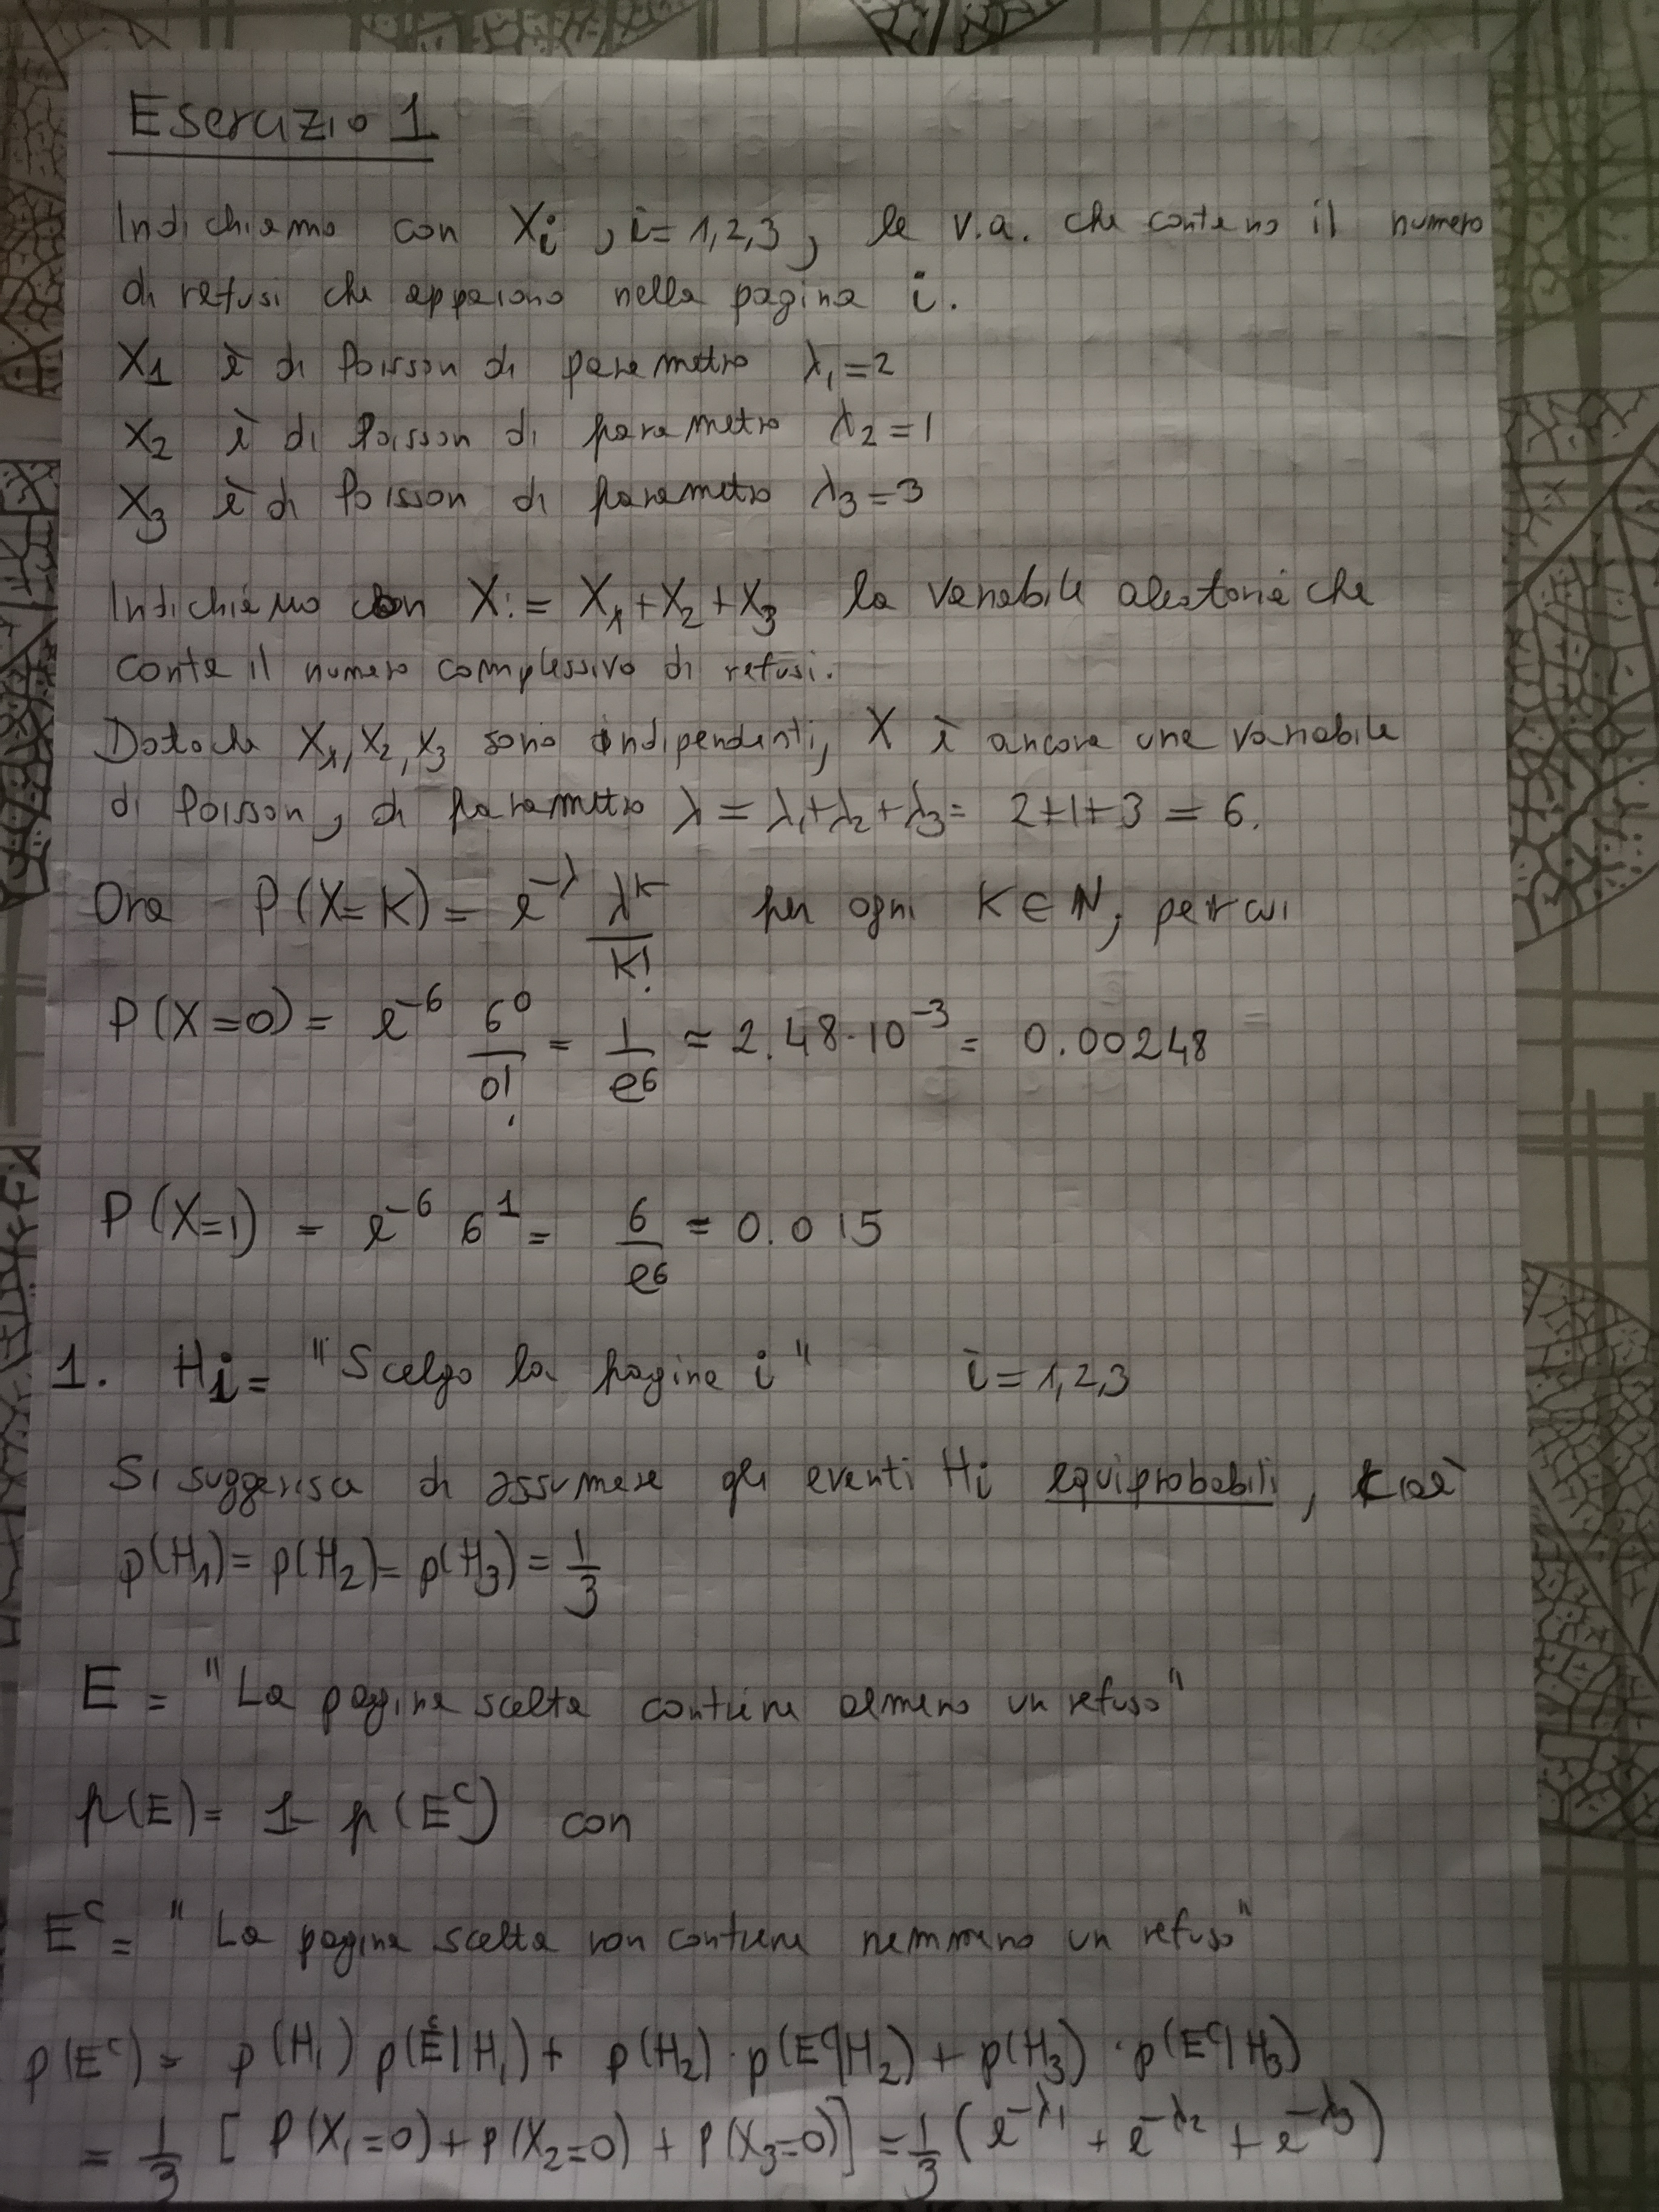 Esercizio 1
Indichiamo con Xi, i=1,2,3, le v.a. che contano il numero
di refusi che appaiono nella pagina i.
X1 è di Poisson di parametro λ1=2
X2 è di Poisson di parametro λ2=1
X3 è di Poisson di parametro λ3=3
Indichiamo con X:= X1+X2+X3 la variabile aleatoria che
conta il numero complessivo di refusi.
Dato che X1, X2, X3 sono indipendenti, X è ancora una variabile
di Poisson, di parametro λ = λ1+λ2+λ3= 2+1+3 = 6.
Ora P(X=K) = e^-λ λ^K/K! per ogni K∈N, per cui
P(X=0)= e^-6 6^0/0! = 1/e^6 ≈ 2.48·10^-3 = 0.00248
P(X=1) = e^-6 6^1 = 6/e^6 ≈ 0.015
1. Hi = "Scelgo la pagina i" i=1,2,3
Si suggerisce di assumere gli eventi Hi equiprobabili, cioè
p(H1)= p(H2)= p(H3)= 1/3
E = "La pagina scelta contiene almeno un refuso"
p(E)= 1- p(E^c) con
E^c = "La pagina scelta non contiene nemmeno un refuso"
p(E^c) = p(H1) p(E^c|H1)+ p(H2)·p(E^c|H2) + p(H3)·p(E^c|H3)
= 1/3 [P(X1=0)+p(X2=0) + p(X3=0)] = 1/3 (e^-λ1 + e^-λ2 + e^-λ3)